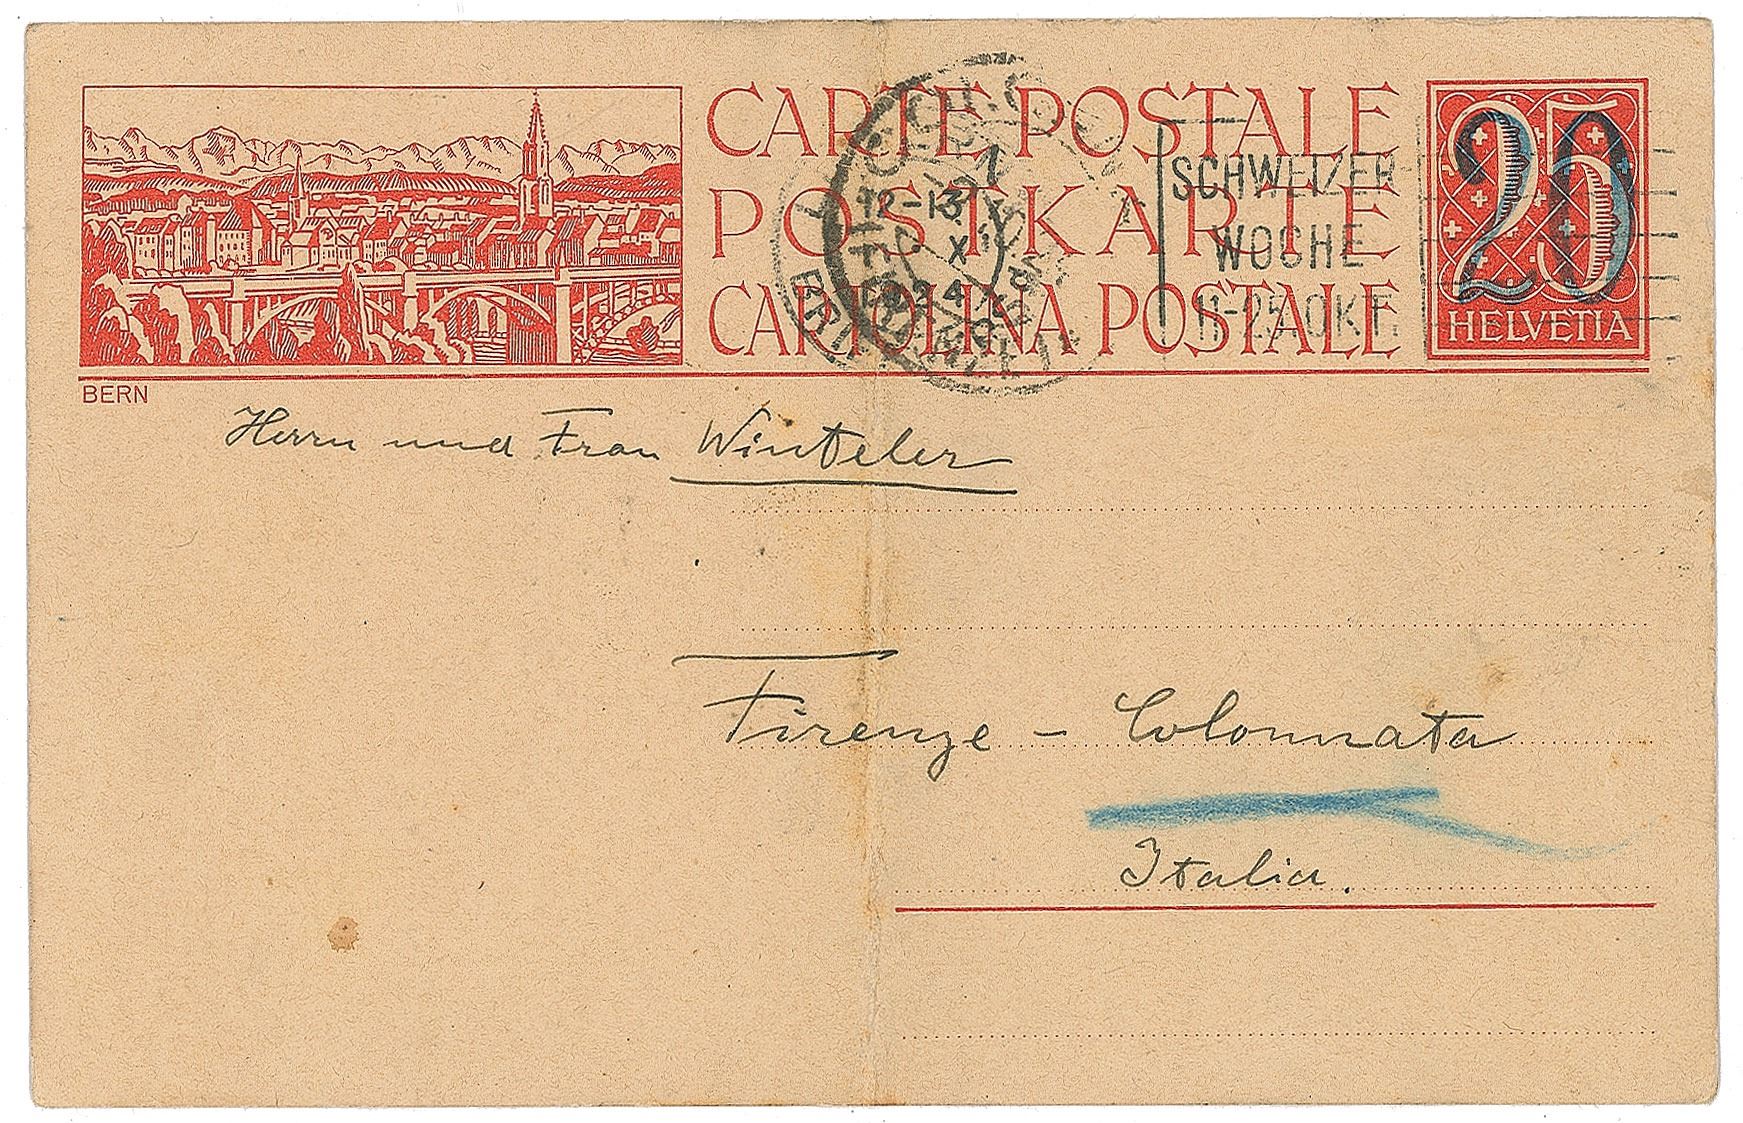 CARTE POSTALE
POSTKARTE
CARTOLINA POSTALE
12-13
X
1924
BRIEF
SCHWEIZER
WOCHE
11-25. OKT.
HELVETIA
BERN
Herrn und Frau Winteler
Firenze – Colonnata
Italia.